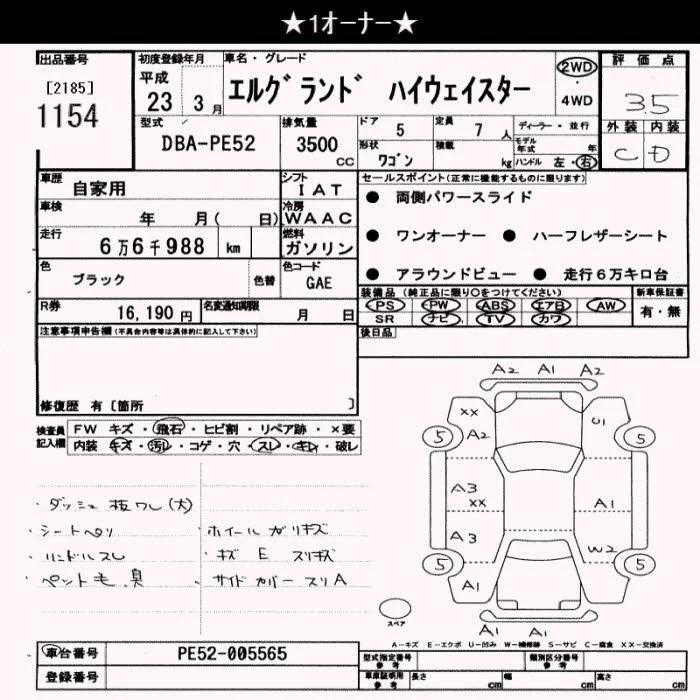 ★1オーナー★
出品番号
[2185]
1154
初度登録年月
平成
23 3 月
車名・グレード
エルグランド ハイウェイスター
2WD
・
4WD
評価点
3.5
外装 内装
C D
型式
DBA-PE52
排気量
3500
CC
ドア 5
定員 7 人
ディーラー・並行
形状 ワゴン
積載 kg
モデル年式 年
ハンドル 左・右
車歴 自家用
シフト IAT
車検 年 月( 日)
冷房 WAAC
走行 6万6千988 km
燃料 ガソリン
色 ブラック 色替
色コード GAE
R券 16,190 円
名変通知期限 月 日
セールスポイント(正常に機能するものに限ります)
● 両側パワースライド
● ワンオーナー ● ハーフレザーシート
● アラウンドビュー ● 走行6万キロ台
装備品(純正品に限り○をつけてください)
新車保証書
PS PW ABS エアB AW
SR ナビ TV カワ
有・無
注意事項申告欄(不具合内容等は具体的に記入して下さい)
後日品
修復歴 有〔箇所 〕
検査員記入欄
FW キズ・飛石・ヒビ割・リペア跡・×要
内装 キズ・汚レ・コゲ・穴・スレ・キレ・破レ
・ダッシュ板ワレ(大)
・シートヘタリ
・ハンドルスレ
・ペット毛、臭
・ホイールガリキズ
・キズ E スリキズ
・サイドカバースリA
A2 A1 A2
XX U1
5 A2 5
A3
XX A1
A3 W2
5 A1 5
A1 A1
スペア
A-キズ E-エクボ U-凹み W-補修跡 S-サビ C-腐食 XX-交換済
車台番号 PE52-005565
登録番号
型式指定番号 参考
類別区分番号 参考
車庫証明用 参考
長さ cm 幅 cm 高さ cm